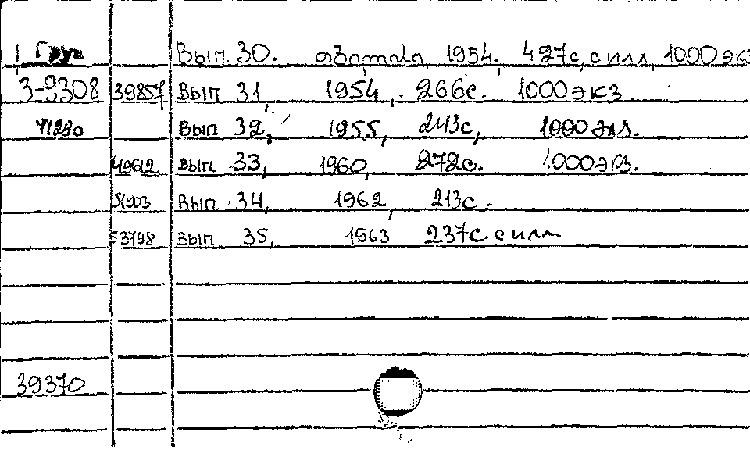 1 Груз Вып. 30. თბილისი, 1954. 427с, с илл, 1000 экз
3-9308 39857 Вып 31, 1954, 266с. 1000 экз
41220 Вып 32, 1955, 243с, 1000 экз.
49612 Вып 33, 1960, 272с. 1000 экз.
Вып. 34, 1962, 213с.
53798 Вып 35, 1963 237с с илл
39370